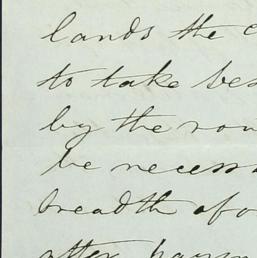 lands the
to take bes
by the rou
be necessa
breadth afo
after havin